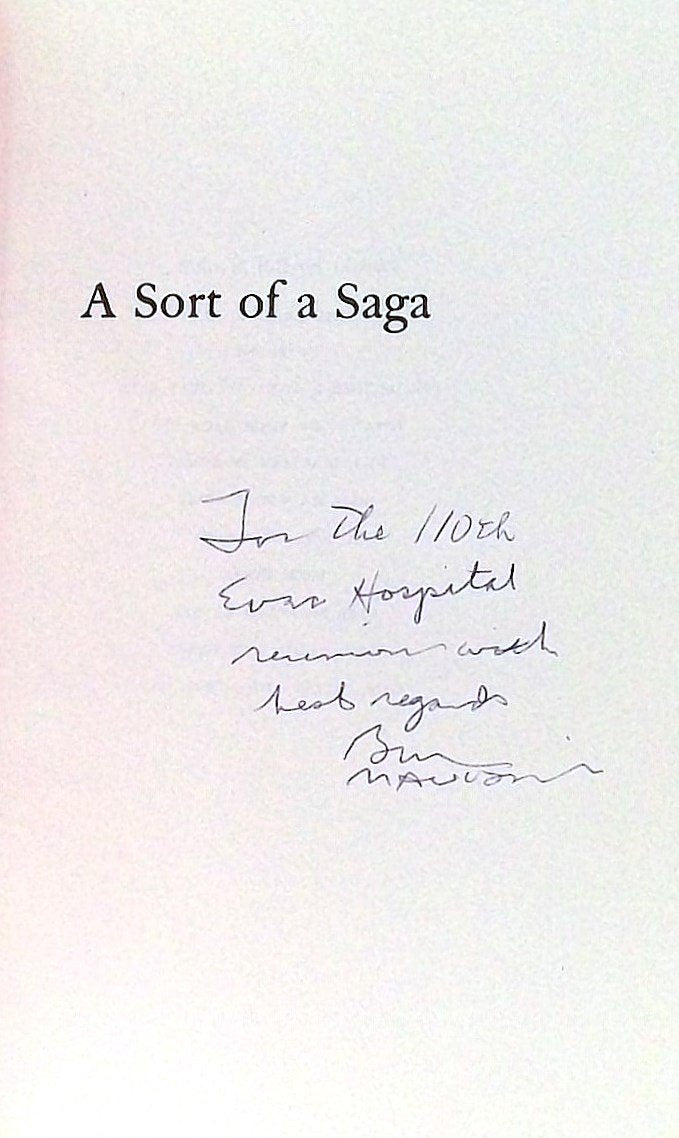 A Sort of a Saga
For the 110th
Evac Hospital
reunion with
best regards
Bill
MAULDIN